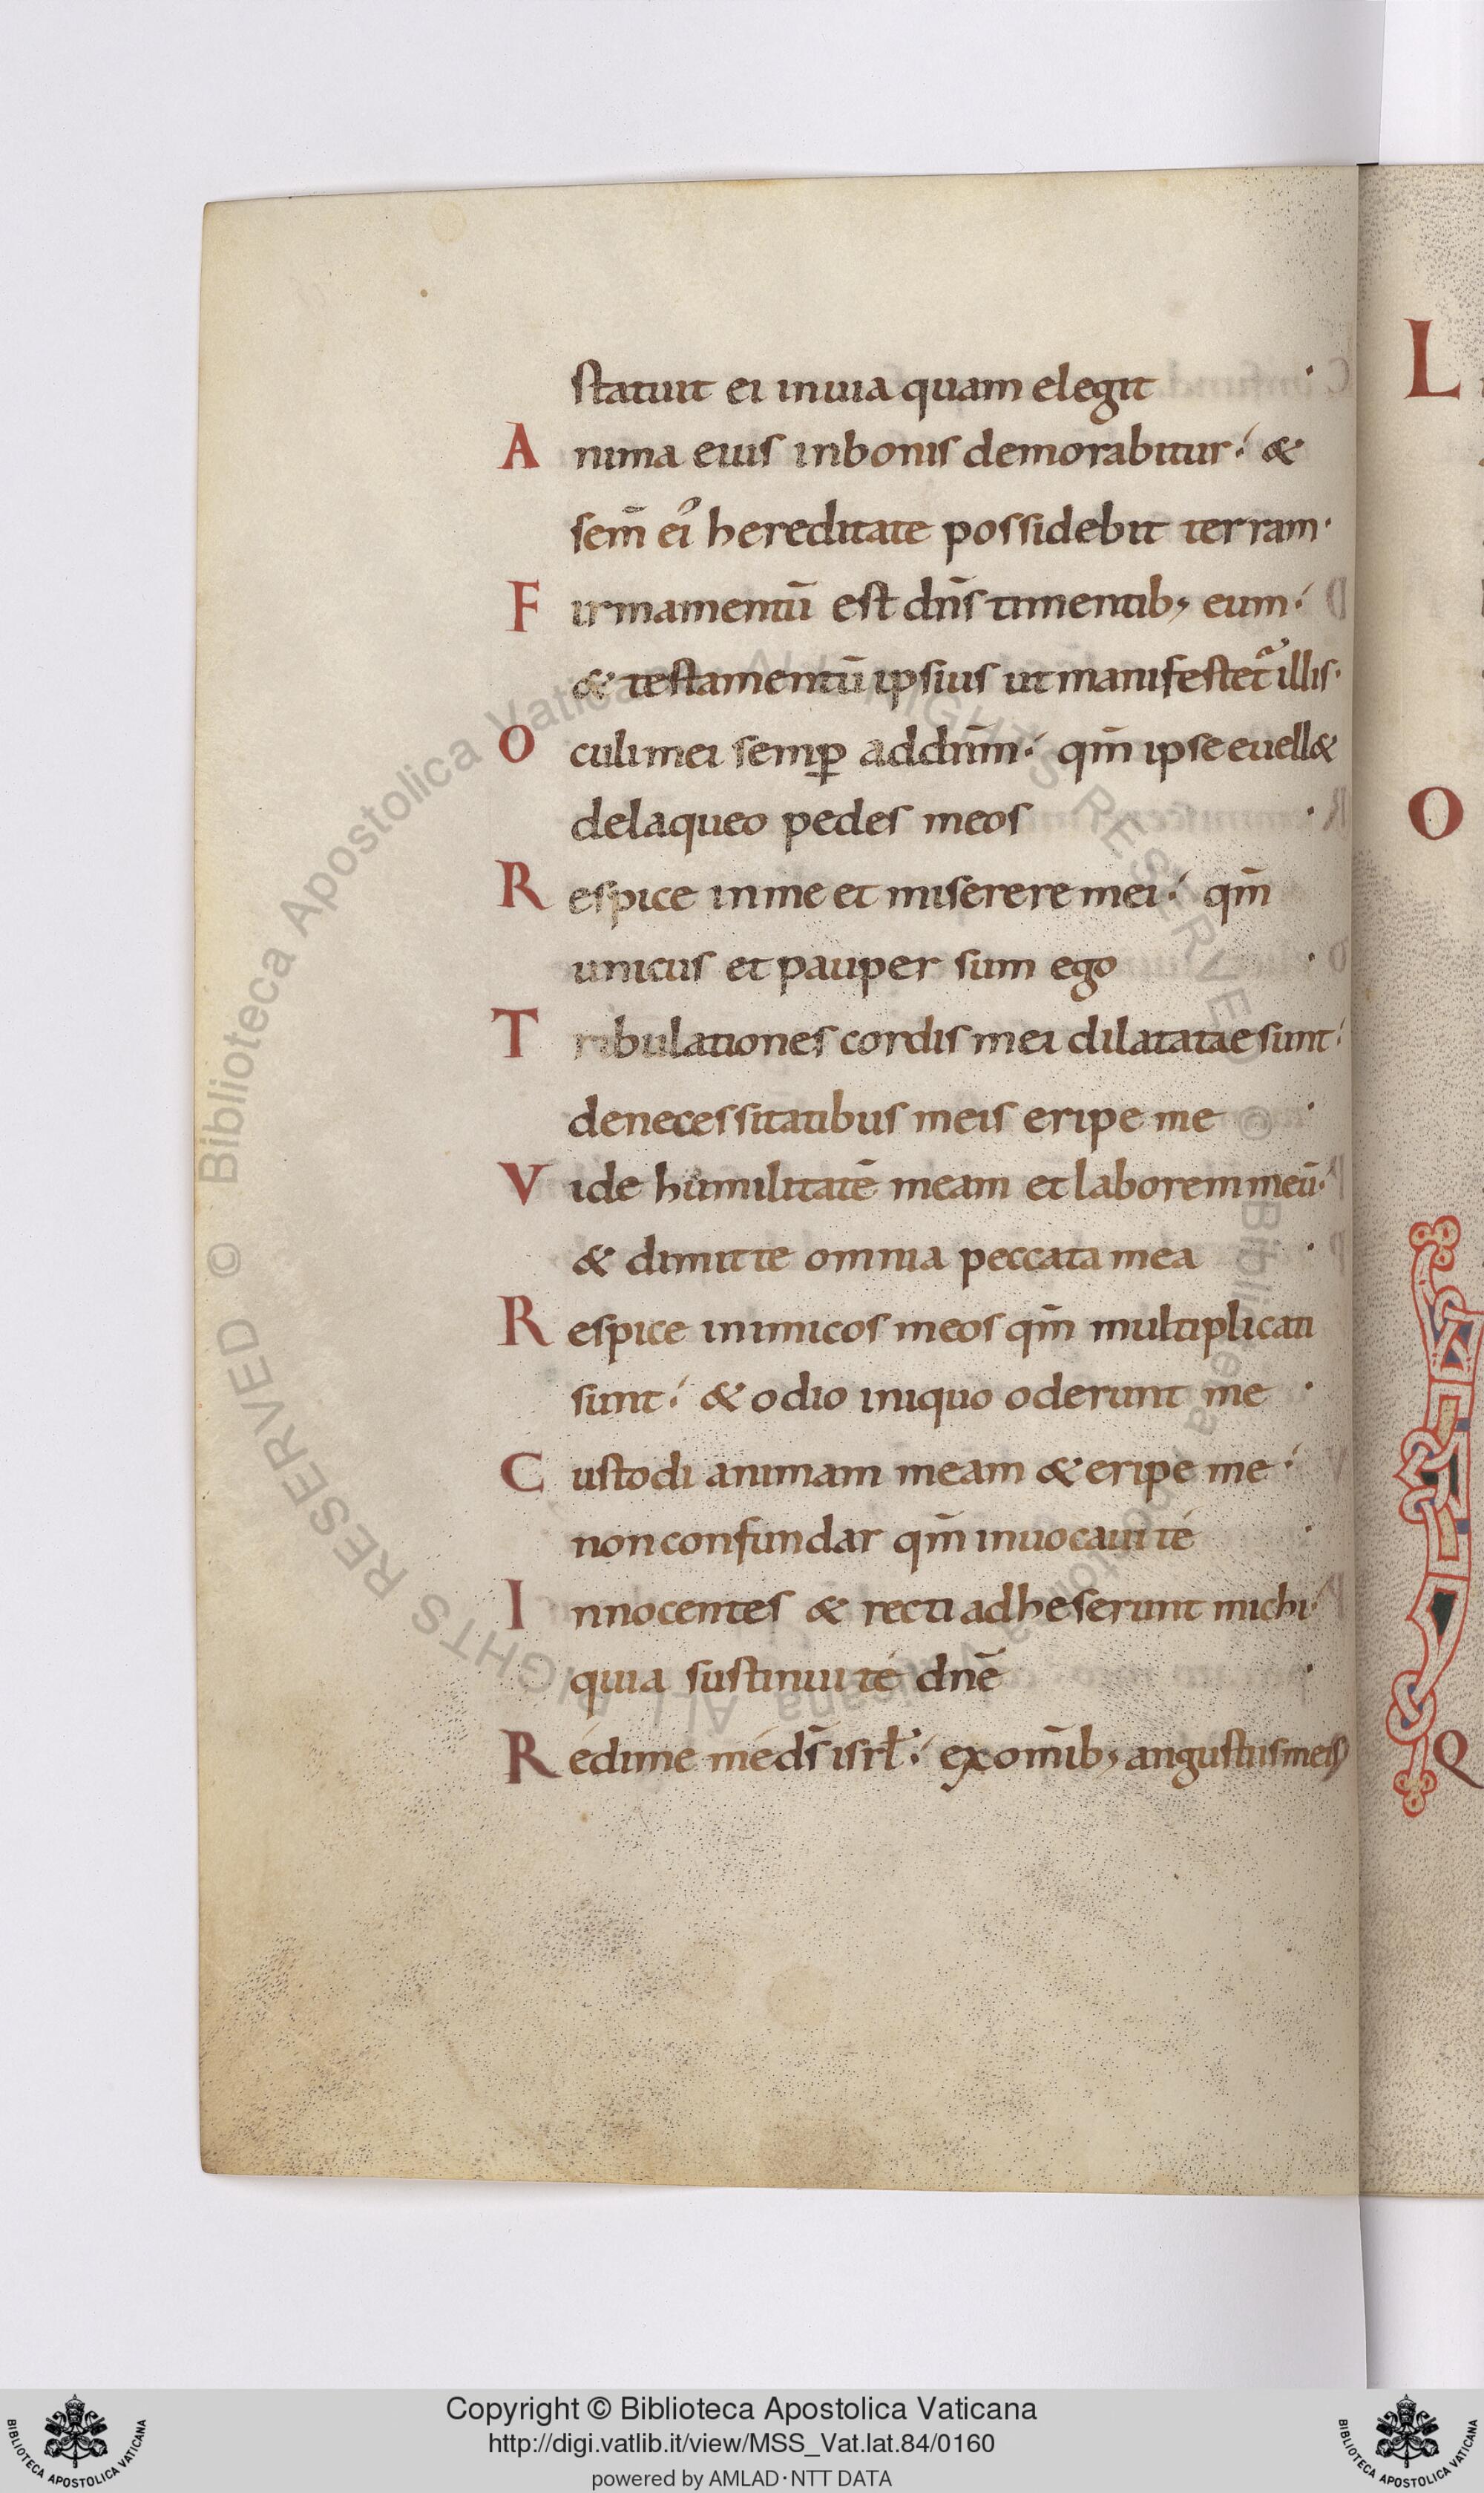 statuit ei inuia quam elegit ·
A nima eius inbonis demorabitur: &
sem̄ ei᾽ hereditate possidebit terram·
F irmamentū est dn̄s timentib; eum:
& testamentū ipsius ut manifestet᷑ illis·
O culi mei semꝑ addn̄m: qm̄ ipse euell&
delaqueo pedes meos ·
R espice inme et miserere mei: qm̄
unicus et pauper sum ego ·
T ribulationes cordis mei dilatatae sunt:
denecessitatibus meis eripe me ·
V ide humilitatē meam et laborem meū:
& dimitte omnia peccata mea ·
R espice inimicos meos qm̄ multiplicati
sunt: & odio iniquo oderunt me ·
C ustodi animam meam & eripe me:
non confundar qm̄ inuocaui té ·
I nnocentes & recti adheserunt michi:
quia sustinui té dnē ·
R édime méds̄ isrł: exom̄ib; angustiis meis
L
O
Q
© Biblioteca Apostolica Vaticana ALL RIGHTS RESERVED © Biblioteca Apostolica Vaticana ALL RIGHTS RESERVED
BIBLIOTECA APOSTOLICA VATICANA
Copyright © Biblioteca Apostolica Vaticana
http://digi.vatlib.it/view/MSS_Vat.lat.84/0160
powered by AMLAD·NTT DATA
BIBLIOTECA APOSTOLICA VATICANA